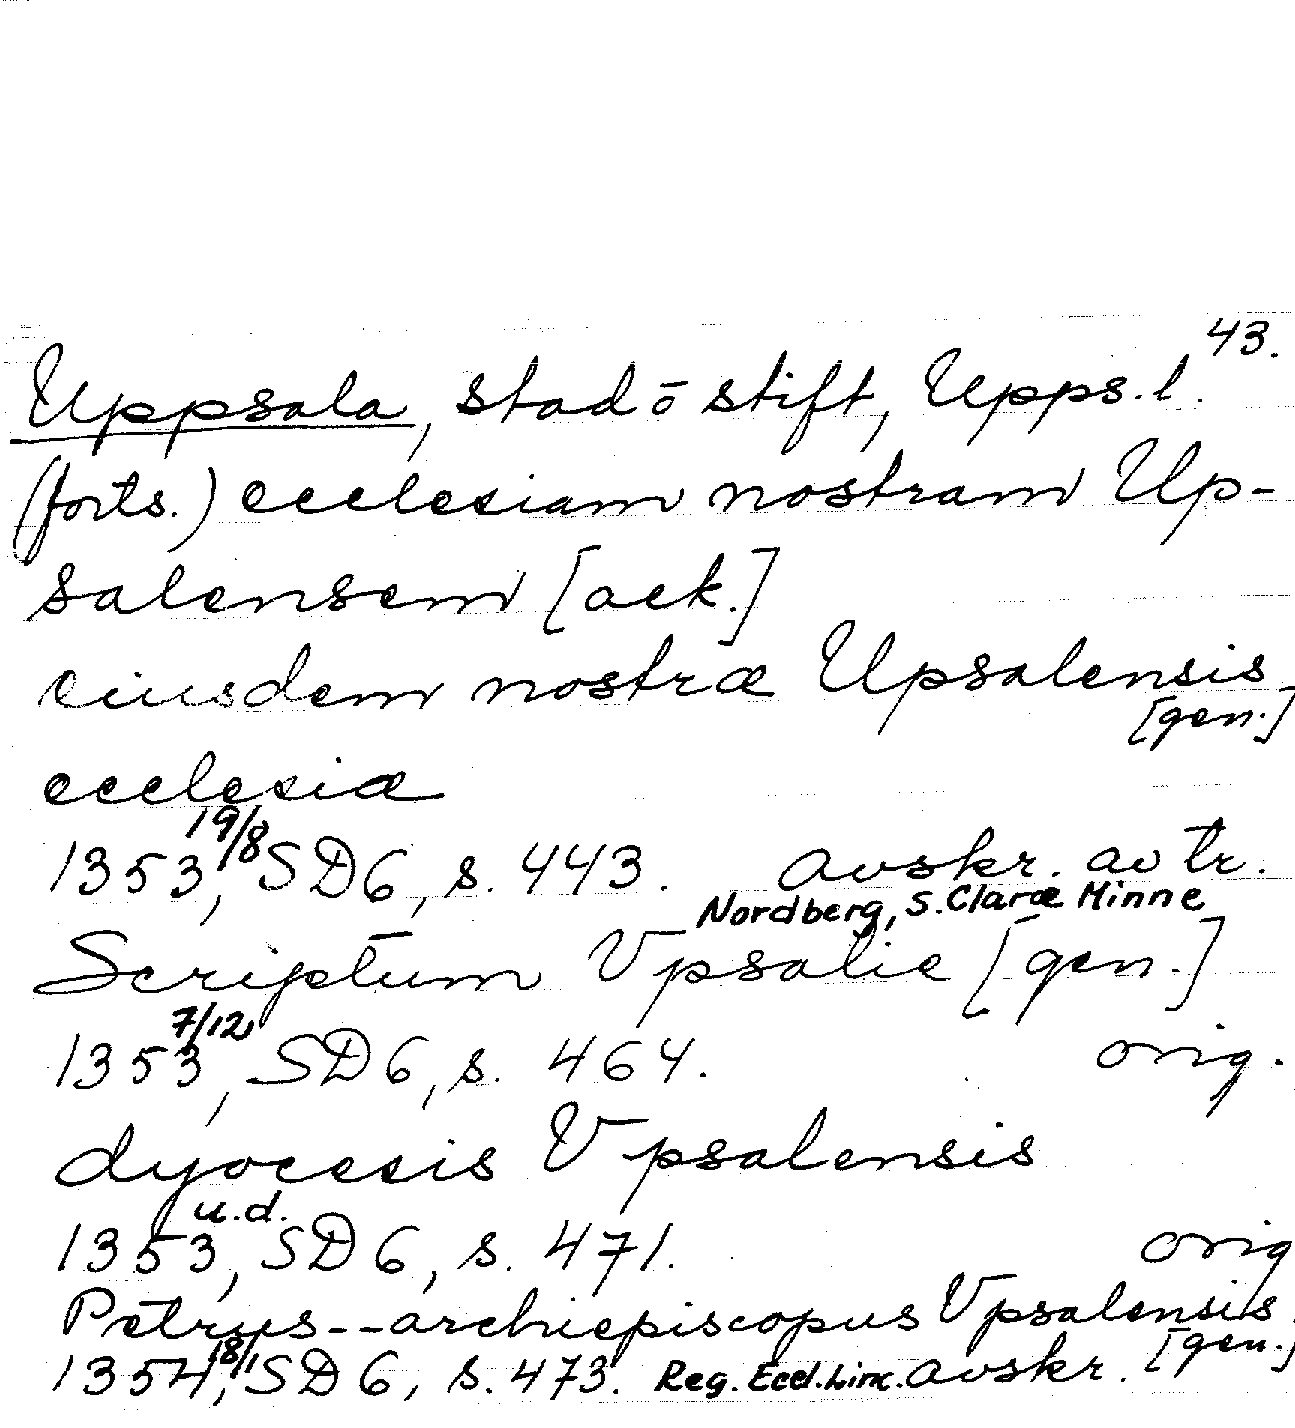 43.
Uppsala, stad o stift, Upps. l.
(forts.) ecclesiam nostram Up-
salensem [ack.]
eiusdem nostræ Upsalensis
[gen.]
ecclesiæ
1353 19/8, SD 6, s. 443. avskr. av tr.
Nordberg, S. Claræ Minne
Scriptum Vpsalie [gen.]
1353 7/12, SD 6, s. 464. orig.
dyocesis Vpsalensis
1353 u.d., SD 6, s. 471. orig
Petrus -- archiepiscopus Vpsalensis
1354 18/1, SD 6, s. 473. Reg. Eccl. Linc. avskr. [gen.]